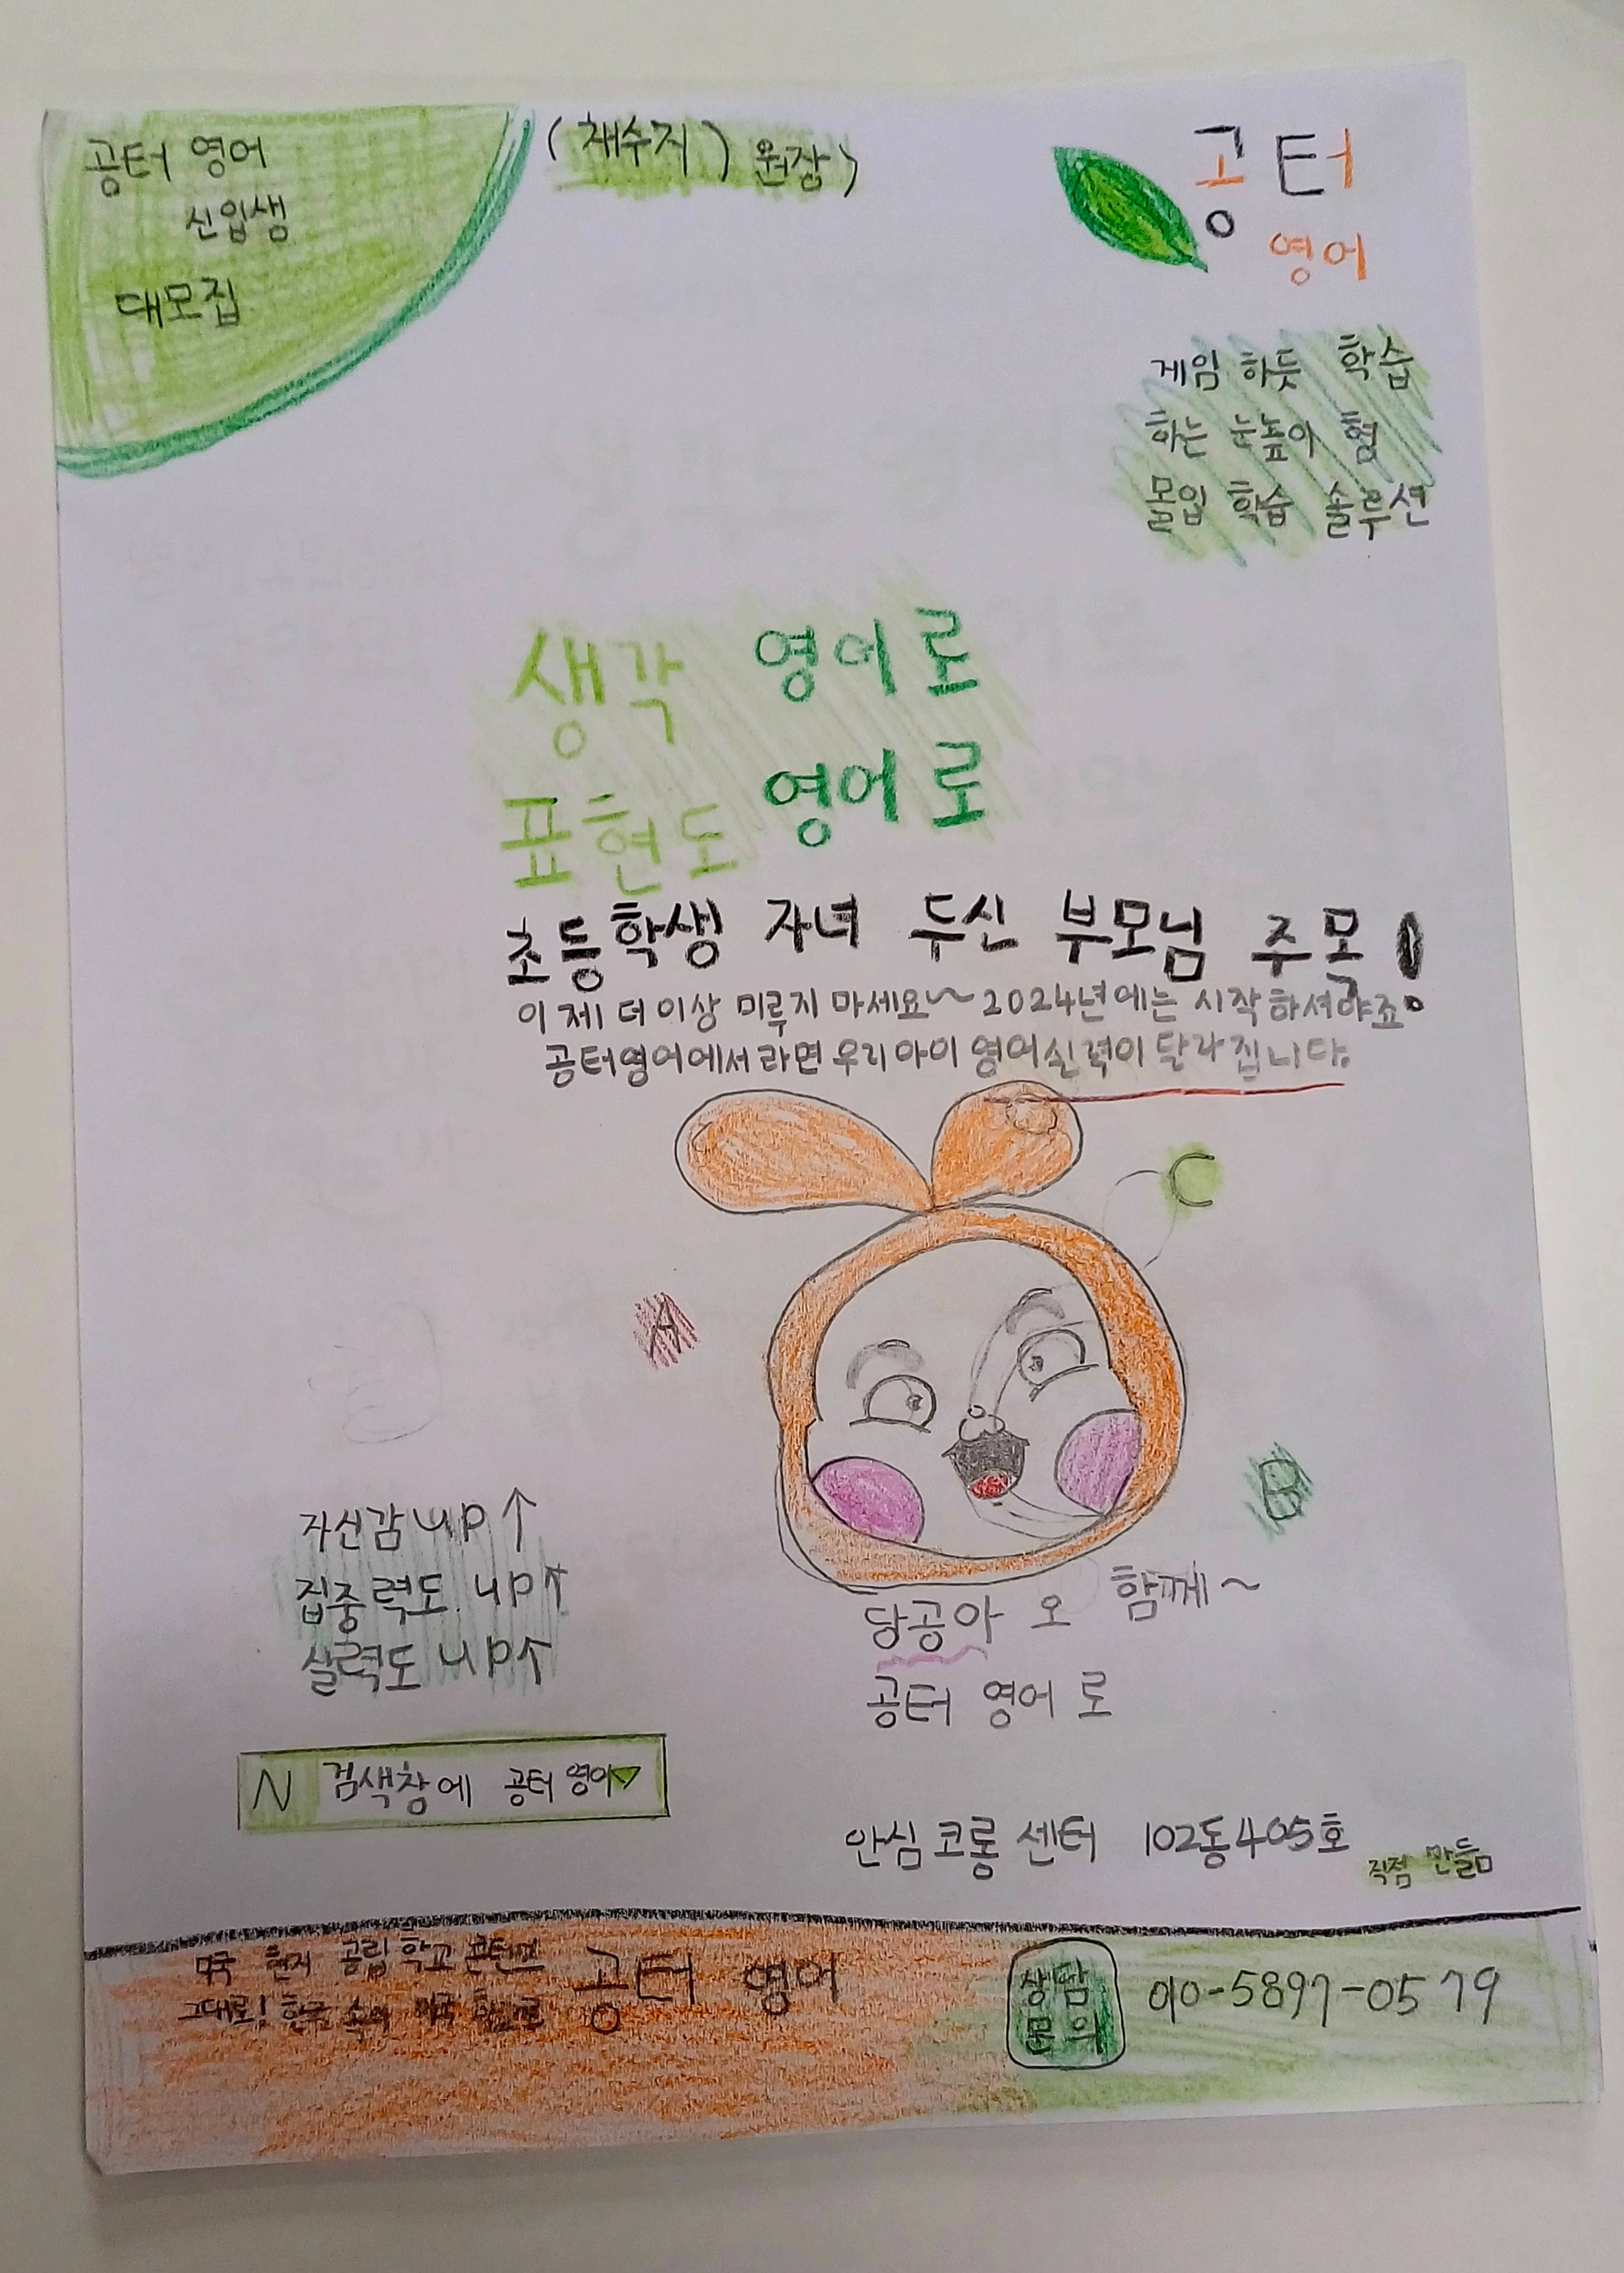 공터 영어
신입생
대모집
(채수지) 원장)
공터
영어
게임 하듯 학습
하는 눈높이 형
몰입 학습 솔루션
생각 영어로
표현도 영어로
초등학생 자녀 두신 부모님 주목!
이제 더이상 미루지 마세요~ 2024년에는 시작하셔야죠
공터영어에서라면 우리아이 영어실력이 달라집니다.
C
A
B
자신감 up↑
집중력도 up↑
실력도 up↑
당공아 오 함께~
공터 영어로
N 검색창에 공터 영어
안심 코롱 센터 102동405호
직접 만듬
미국 현지 공립 학교 콘텐츠
그대로! 한국 속의 미국 학교
공터 영어
상담
문의
010-5897-0579